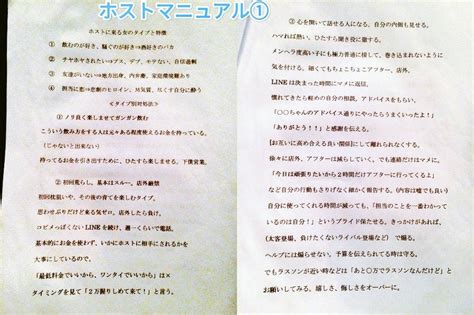 ホストマニュアル①
ホストに来る女のタイプと特徴
① 飲むのが好き、騒ぐのが好き⇒酒好きのバカ
② チヤホヤされたい⇒ブス、デブ、モテない、自信過剰
③ 友達がいない⇒地方出身、内弁慶、家庭環境難あり
④ 担当に恋⇒恋愛のヒロイン、M気質、尽くす自分に酔う
≪タイプ別対処法≫
① ノリ良く楽しませてガンガン飲む
こういう飲み方をする人は元々ある程度使えるお金を持っている。
(じゃないと出来ない)
持ってるお金を引き出すために、ひたすら楽しませる。下僕営業。
② 初回荒らし。基本はスルー。店外厳禁
初回枕狙いや、その後の育てを楽しむタイプ。
思わせぶりだけど来る気ゼロ。店外したら負け。
コピメっぽくないLINEを続け、週一くらいで電話。
基本的にお金を使わず、いかにホストに相手にされるかを
大事にしているので、
「最低料金でいいから、ワンタイでいいから」は×
タイミングを見て「2万握りしめて来て!」と言う。
③ 心を開いて話せる人になる。自分の内側も見せる。
ハマれば熱い。ひたすら聞き役に徹する。
メンヘラ度高い子にも極力普通に接して、巻き込まれないように
気を付ける。細くてもちょこちょこアフター、店外。
LINEは決まった時間にマメに返信。
慣れてきたら軽めの自分の相談。アドバイスをもらい、
「○○ちゃんのアドバイス通りにやったらうまくいったよ!
ありがとう!!」と感謝を伝える。
[お互いに高め合える良い関係]にして離れられなくする。
徐々に店外、アフターは減らしていく。でも連絡だけはマメに。
「今日は頑張りたいから2時間だけアフター行ってくるよ」
など自分の行動もさりげなく細かく報告する。(内容は嘘でも良い)
自分にさいてくれる時間が減っても、「担当のことを一番わかって
いるのは自分!」というプライド保たせる。きっかけがあれば、
(太客登場、負けたくないライバル登場など) で煽る。
ヘルプには煽らせない。予算を伝えられてる時は守る。
でもラスソンが近い時などは「あと○万でラスソンなんだけど」と
お願いしてみる。嬉しさ、悔しさをオーバーに。